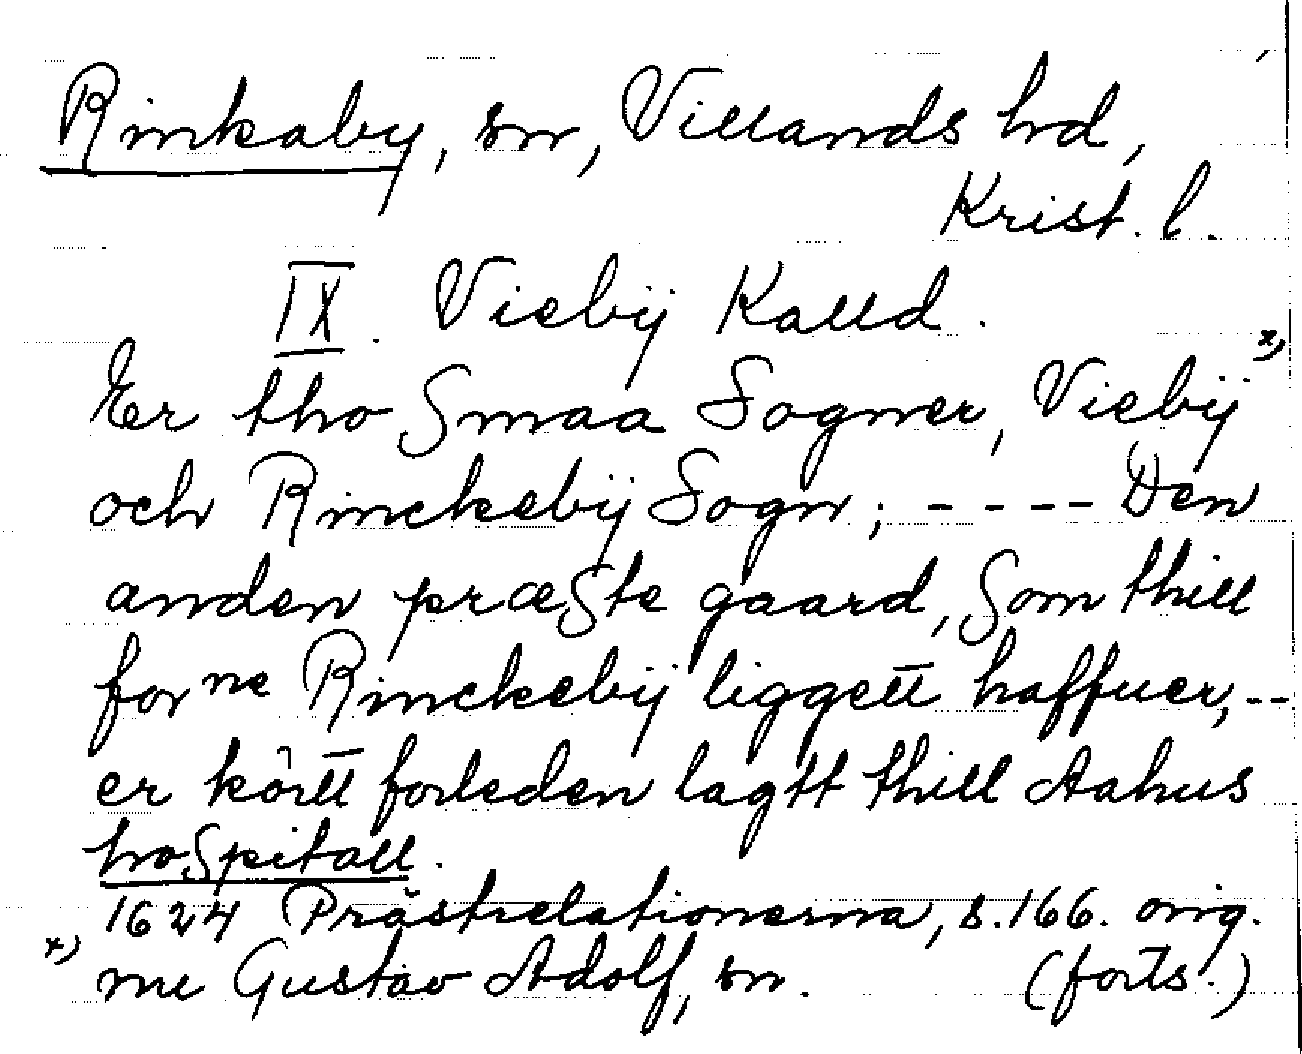 Rinkaby, sn, Villands hd,
Krist. l.
IX. Viebÿ Kalld.
Er tho Smaa Sogner, Viebÿ x)
och Rinckebÿ Sogn; - - - - Den
anden præste gaard, som thill
forne Rinckebÿ liggett haffuer, --
er körtt forleden lagtt thill Aahus
hospitall.
1624 Prästrelationerna, s. 166. orig.
x) nu Gustav Adolf, sn. (forts.)